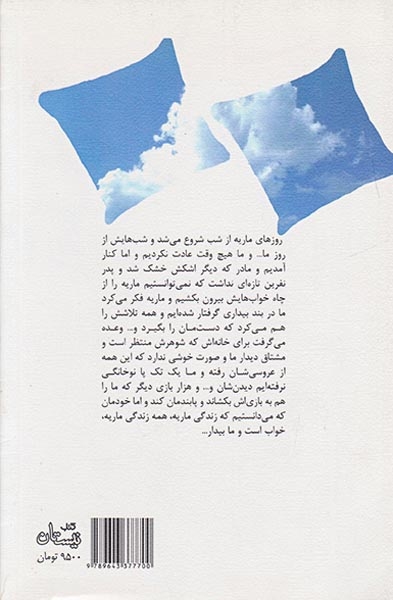 روزهای ماریه از شب شروع می‌شد و شب‌هایش از
روز ما... و ما هیچ وقت عادت نکردیم و اما کنار
آمدیم و مادر که دیگر اشکش خشک شد و پدر
نفرین تازه‌ای نداشت که نمی‌توانستیم ماریه را از
چاه خواب‌هایش بیرون بکشیم و ماریه فکر می‌کرد
ما در بند بیداری گرفتار شده‌ایم و همه تلاشش را
هم می‌کرد که دست‌مان را بگیرد و... وعده
می‌گرفت برای خانه‌اش که شوهرش منتظر است و
مشتاق دیدار ما و صورت خوشی ندارد که این همه
از عروسی‌شان رفته و ما یک تک پا نوخانگی
نرفته‌ایم دیدن‌شان و... و هزار بازی دیگر که ما را
هم به بازی‌اش بکشاند و پابندمان کند و اما خودمان
که می‌دانستیم که زندگی ماریه، همه زندگی ماریه،
خواب است و ما بیدار...
کتاب
نیستان
۹۵۰۰ تومان
9 789643 377700